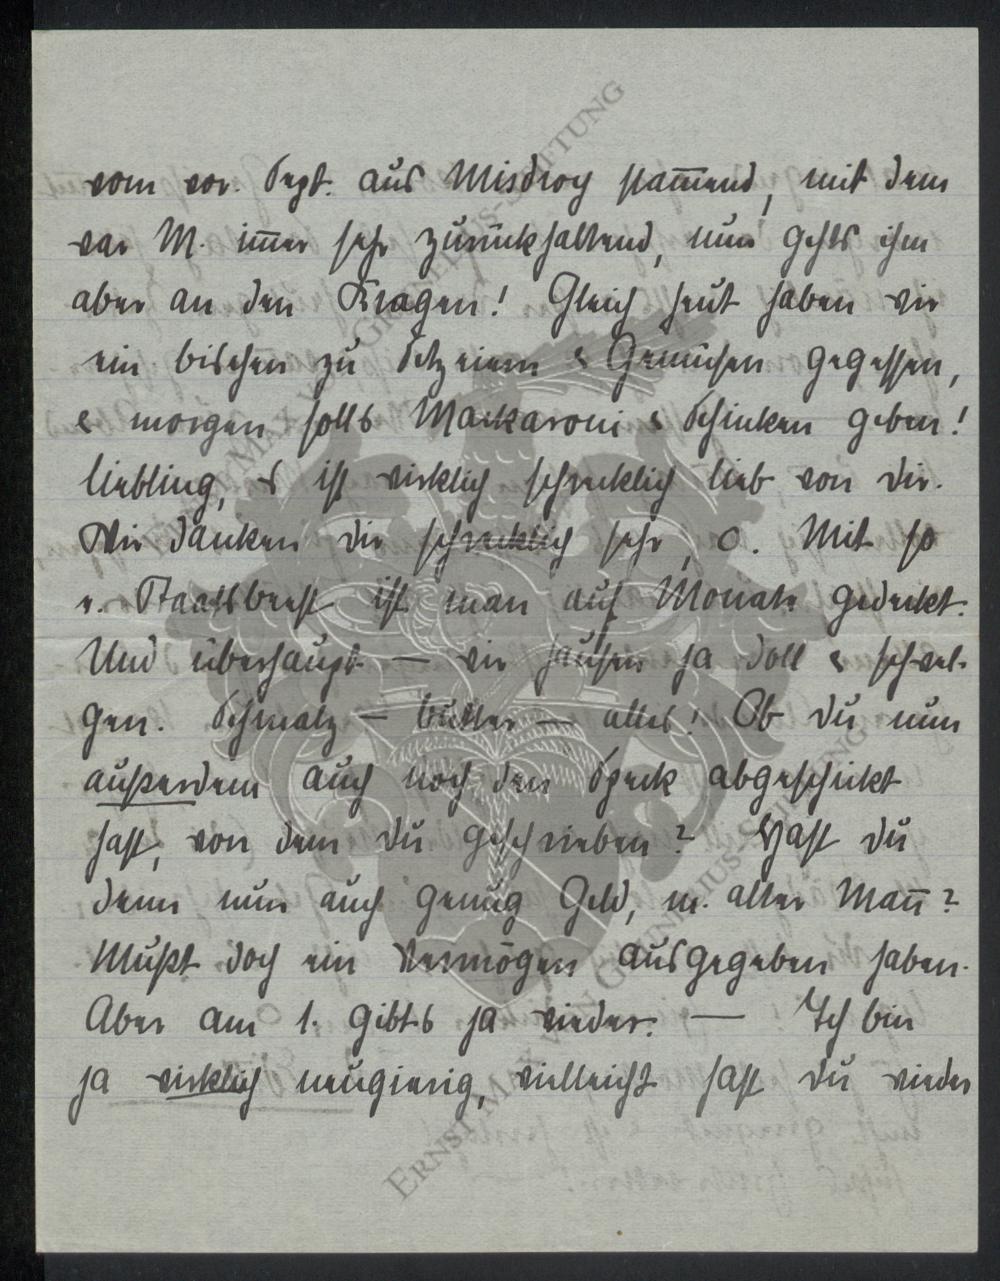 vom vor. Sept. aus Misdroy stam̅end, mit dem
war M. im̅er sehr zurückhaltend, nun gehts ihm
aber an den Kragen! Gleich heut haben wir
ein bischen zu & Gemüsen gegessen,
& morgen solls Mackaroni & Schinken geben!
Liebling, es ist wirklich schrecklich lieb von dir.
Wir danken dir schrecklich sehr, O. Mit so
e. ist man auf Monate gedeckt.
Und überhaupt — wir hausen ja doll & schwel-
gen. Schmalz — Butter — alles! Ob du nun
außerdem auch noch den Speck abgeschickt
hast, von dem du geschrieben? Hast du
denn nun auch genug Geld, m. alter Man̅?
Mußt doch ein Vermögen ausgegeben haben.
Aber am 1. gibts ja wieder. — Ich bin
ja wirklich neugierig, vielleicht hast du wieder
ERNST MAX VON GRUNELIUS-STIFTUNG
ERNST MAX VON GRUNELIUS-STIFTUNG